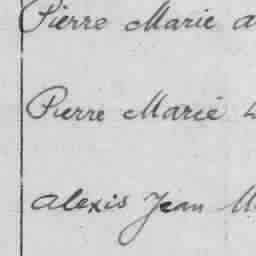 Pierre Marie
Pierre Marie
Alexis Jean